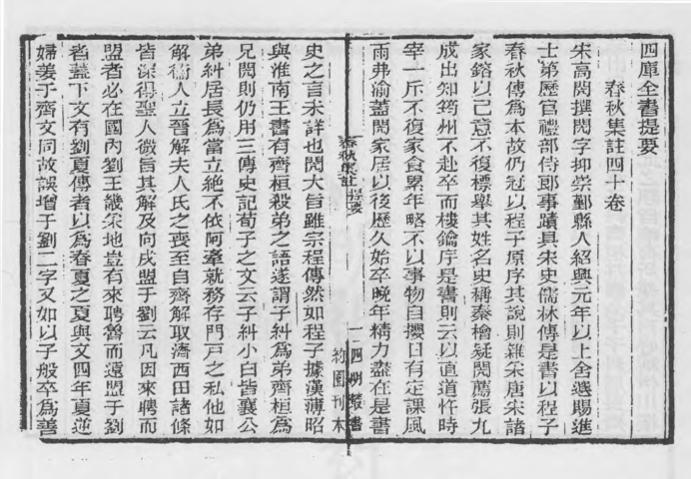 四庫全書提要
春秋集註四十卷
宋高閌撰閌字抑崇鄞縣人紹興元年以上舍選賜進
士第歷官禮部侍郎事蹟具宋史儒林傳是書以程子
春秋傳為本故仍冠以程子原序其說則雜采唐宋諸
家鎔以己意不復標舉其姓名史稱秦檜疑閌薦張九
成出知筠州不赴卒而樓鑰序是書則云以直道忤時
宰一斥不復家食累年略不以事物自攖日有定課風
雨弗渝蓋閌家居以後歷久始卒晚年精力盡在是書
春秋集註 提要
一 四明叢書
約園刊本
史之言未詳也閌大旨雖宗程傳然如程子據漢薄昭
與淮南王書有齊桓殺弟之語遂謂子糾為弟齊桓為
兄閌則仍用三傳史記荀子之文云子糾小白皆襄公
弟糾居長為當立絕不依阿牽就務存門戶之私他如
解衞人立晉解夫人氏之喪至自齊解取濟西田諸條
皆深得聖人微旨其解及向戌盟于劉云凡因來聘而
盟者必在國內劉王畿采地豈有來聘魯而遠盟于劉
者蓋下文有劉夏傳者以為春夏之夏與文四年夏逆
婦姜于齊文同故誤增于劉二字又如以子般卒為善